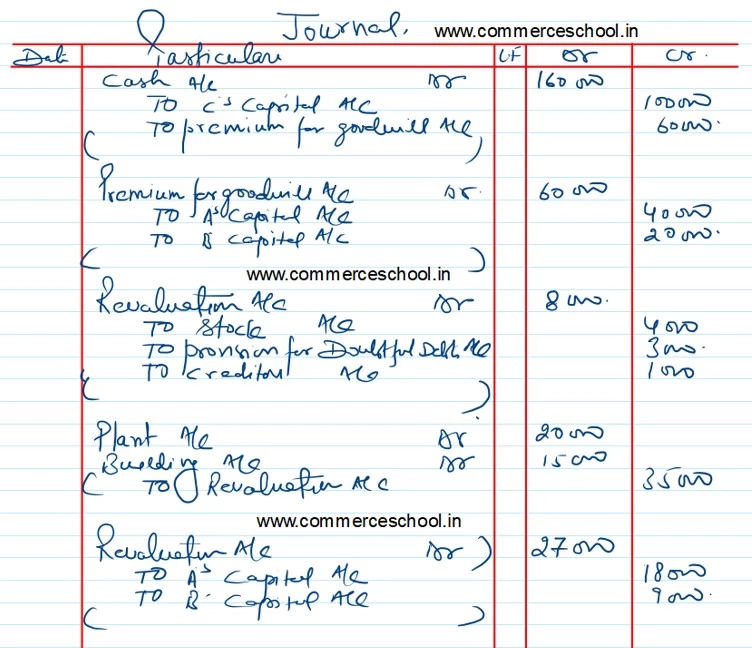 Journal. www.commerceschool.in
Date Particulars LF Dr Cr.
Cash A/c Dr 160000
To C's Capital A/C 100000
To premium for goodwill A/c 60000
Premium for goodwill A/c Dr. 60000
To A's Capital A/c 40000
To B Capital A/C 20000
www.commerceschool.in
Revaluation A/c Dr 8000
To Stock A/c 4000
To provision for Doubtful Debt A/c 3000
To Creditors A/c 1000
Plant A/c Dr 20000
Building A/c Dr 15000
To Revaluation A/c 35000
www.commerceschool.in
Revaluation A/c Dr 27000
To A's Capital A/c 18000
To B' Capital A/c 9000